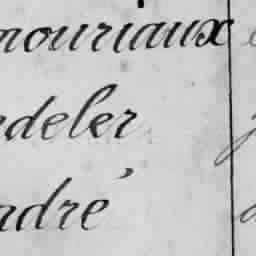 mouriaux
edeler
adré